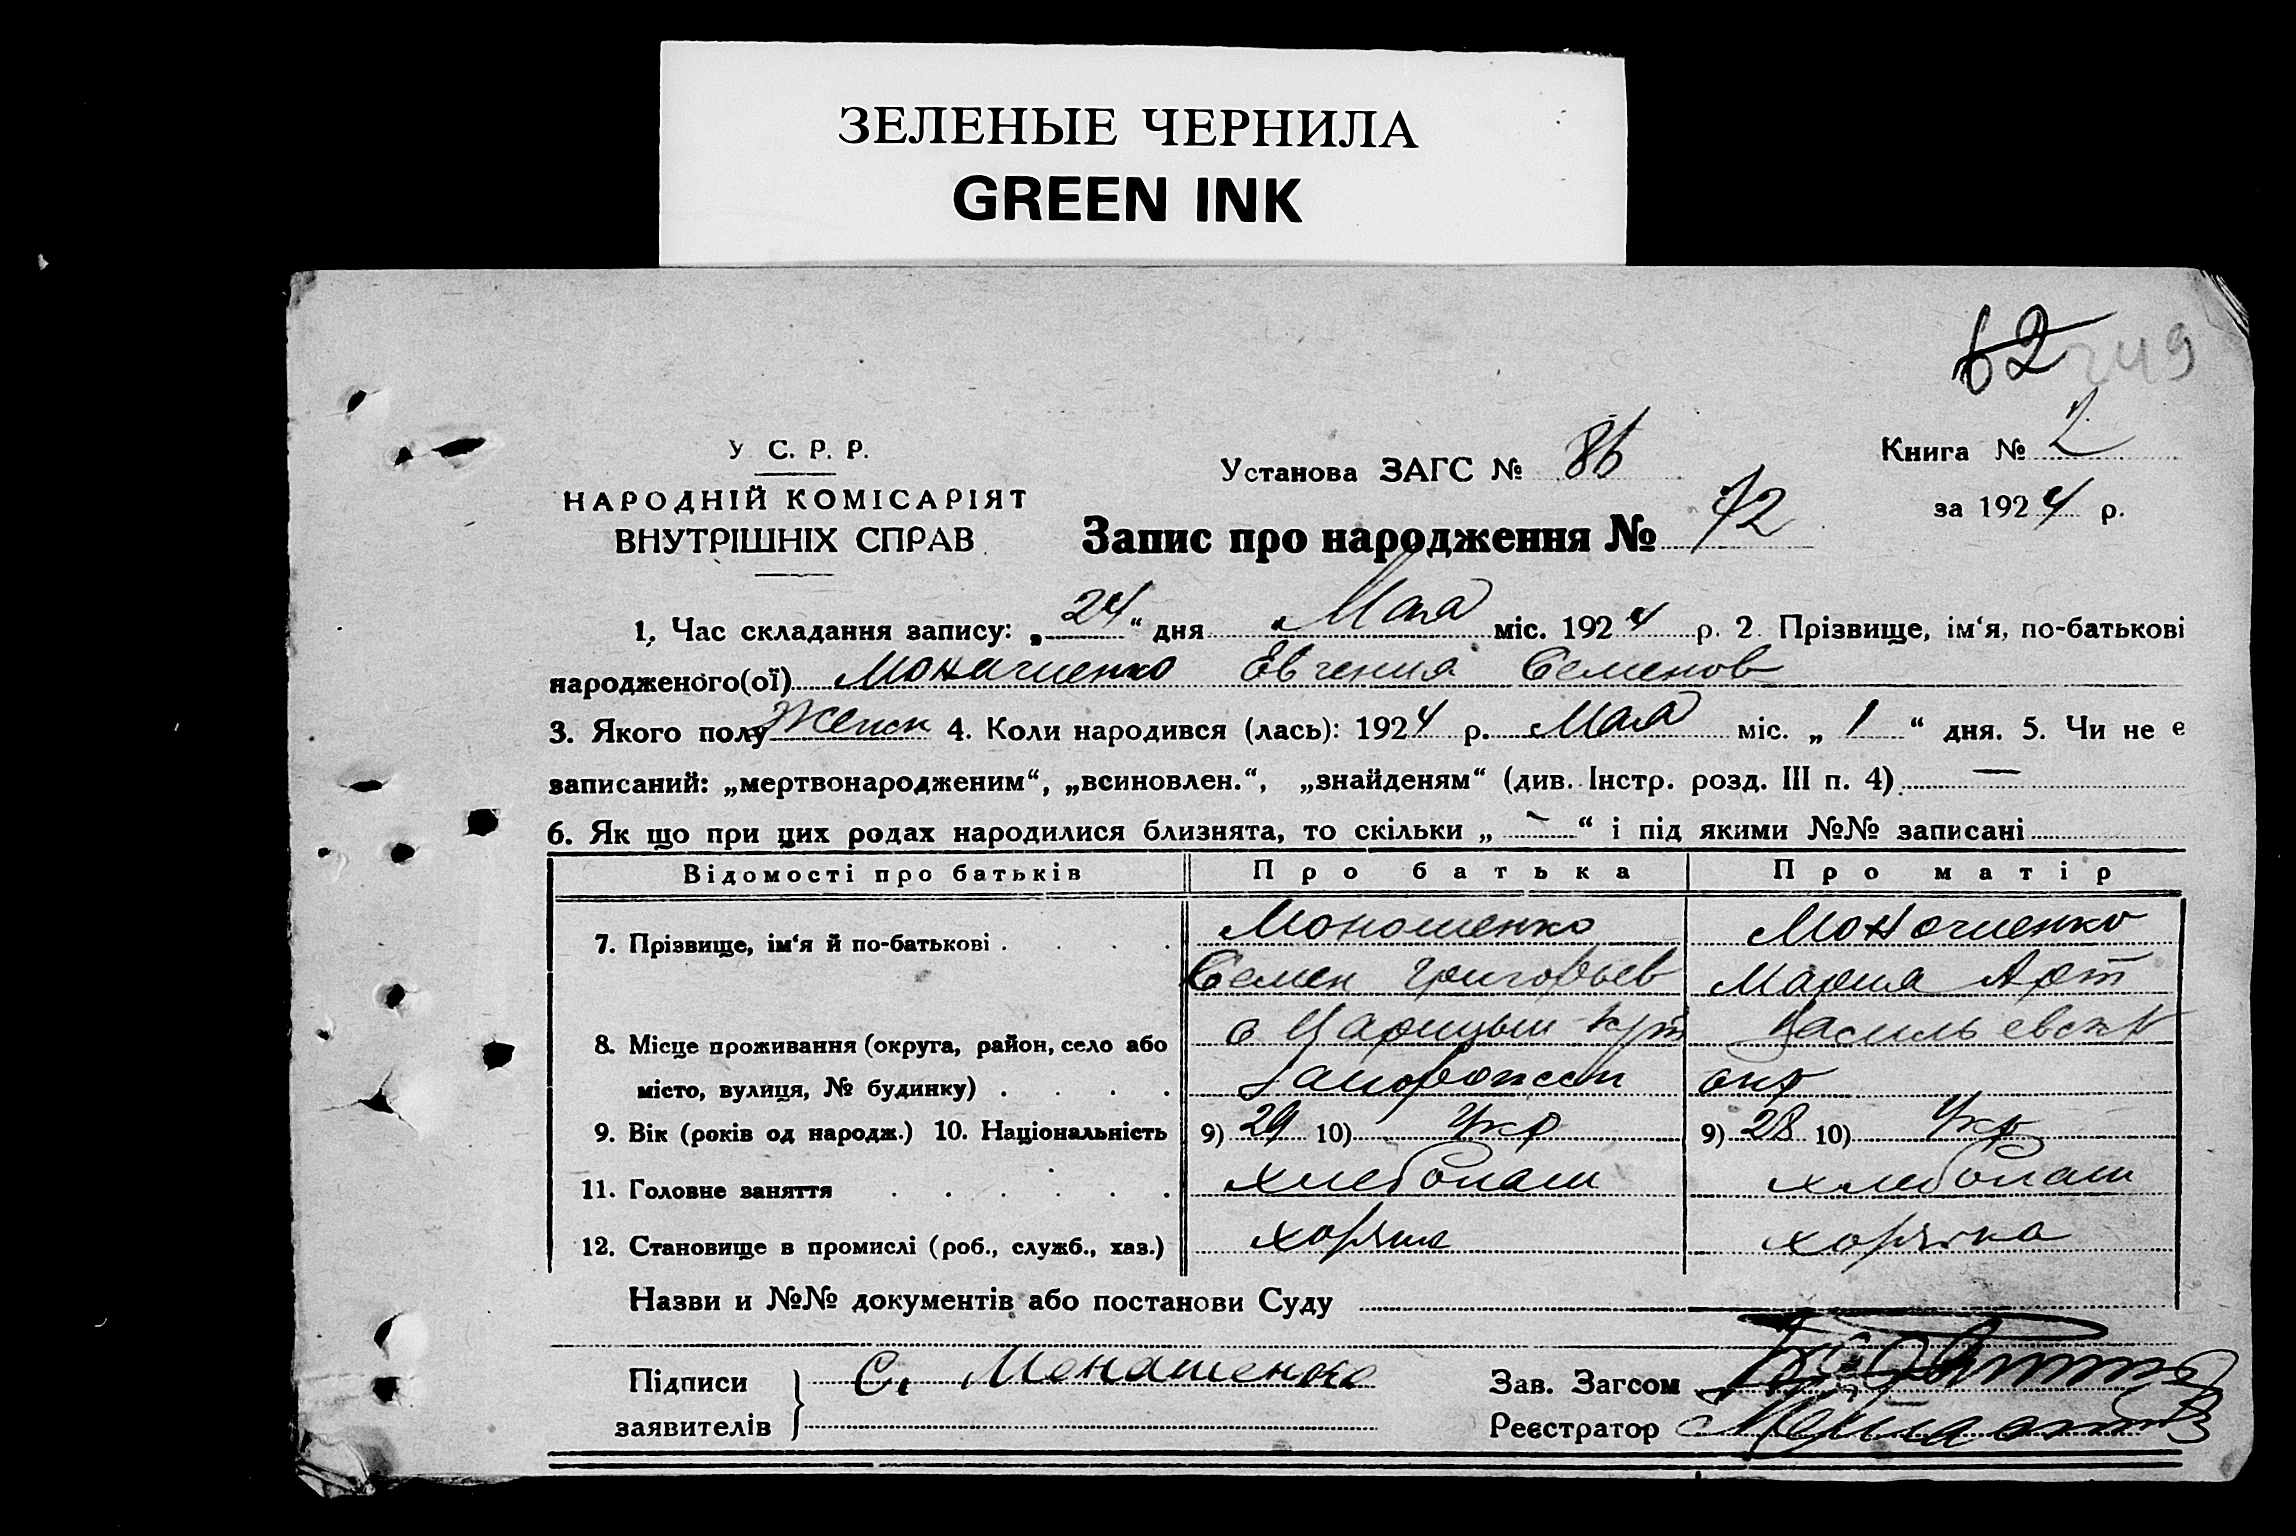 ЗЕЛЕНЫЕ ЧЕРНИЛА
GREEN INK
62 249
У С. Р. Р.
НАРОДНІЙ КОМІСАРІЯТ
ВНУТРІШНІХ СПРАВ
Установа ЗАГС № 86
Книга № 2
за 1924 р.
Запис про народження № 72
1, Час складання запису: „24“ дня Мая міс. 1924 р. 2 Прізвище, ім‘я, по-батькові
народженого(ої) Моначиенко Евгения Семенов
3. Якого полу Женск 4. Коли народився (лась): 1924 р. Мая міс. „1“ дня. 5. Чи не є
записаний: „мертвонародженим“, „всиновлен.“, „знайденям“ (див. Інстр. розд. III п. 4) —
6. Як що при цих родах народилися близнята, то скільки „ — “ і під якими №№ записані
Відомості про батьків Про батька Про матір
7. Прізвище, ім‘я й по-батькові . . . . Мономенко
Семен Григорьев Мария Арт
8. Місце проживання (округа, район, село або
місто, вулиця, № будинку) . . . . с Царицын Кут Васильевск р
Запорожск окр
9. Вік (років од народж.) 10. Національність 9) 29 10) Укр 9) 28 10) Укр
11. Головне заняття . . . . . . хлебопаш хлебопаш
12. Становище в промислі (роб., служб., хаз.)
Назви и №№ документів або постанови Суду
Підписи
заявителів
С. Монашенко
Зав. Загсом
Реєстратор